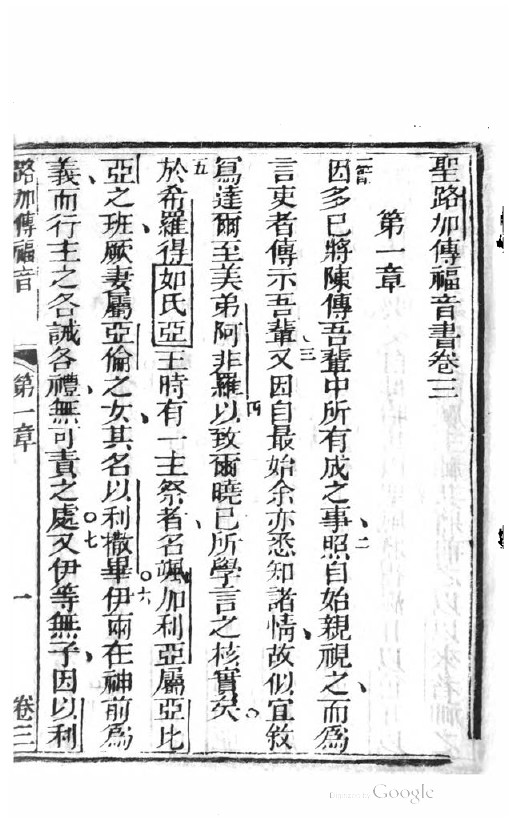 聖路加傳福音書卷三
第一章
一節因多已將陳傳吾輩中所有成之事、二照自始親視之、而爲
言吏者傳示吾輩、三又因自最始余亦悉知諸情、故似宜敘
寫達爾至美弟阿非羅、四以致爾曉已所學言之核實矣。
五於希羅得如氏亞王時、有一主祭者、名颯加利亞、屬亞比
亞之班、厥妻屬亞倫之女、其名以利撒畢。六伊兩在神前爲
義、而行主之各誡各禮、無可責之處。七又伊等無子、因以利
路加傳福音 第一章 一 卷三
Google